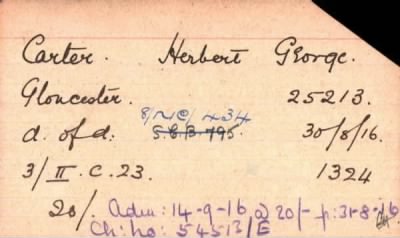 Carter. Herbert George.
Gloucester. 25213.
8/N©/434
d. of d. S.C.B. 795. 30/8/16.
3/II.C.23. 1324
20/. Adm: 14-9-16 @ 20/- f: 31-8-16
Ch: No: 54513/E